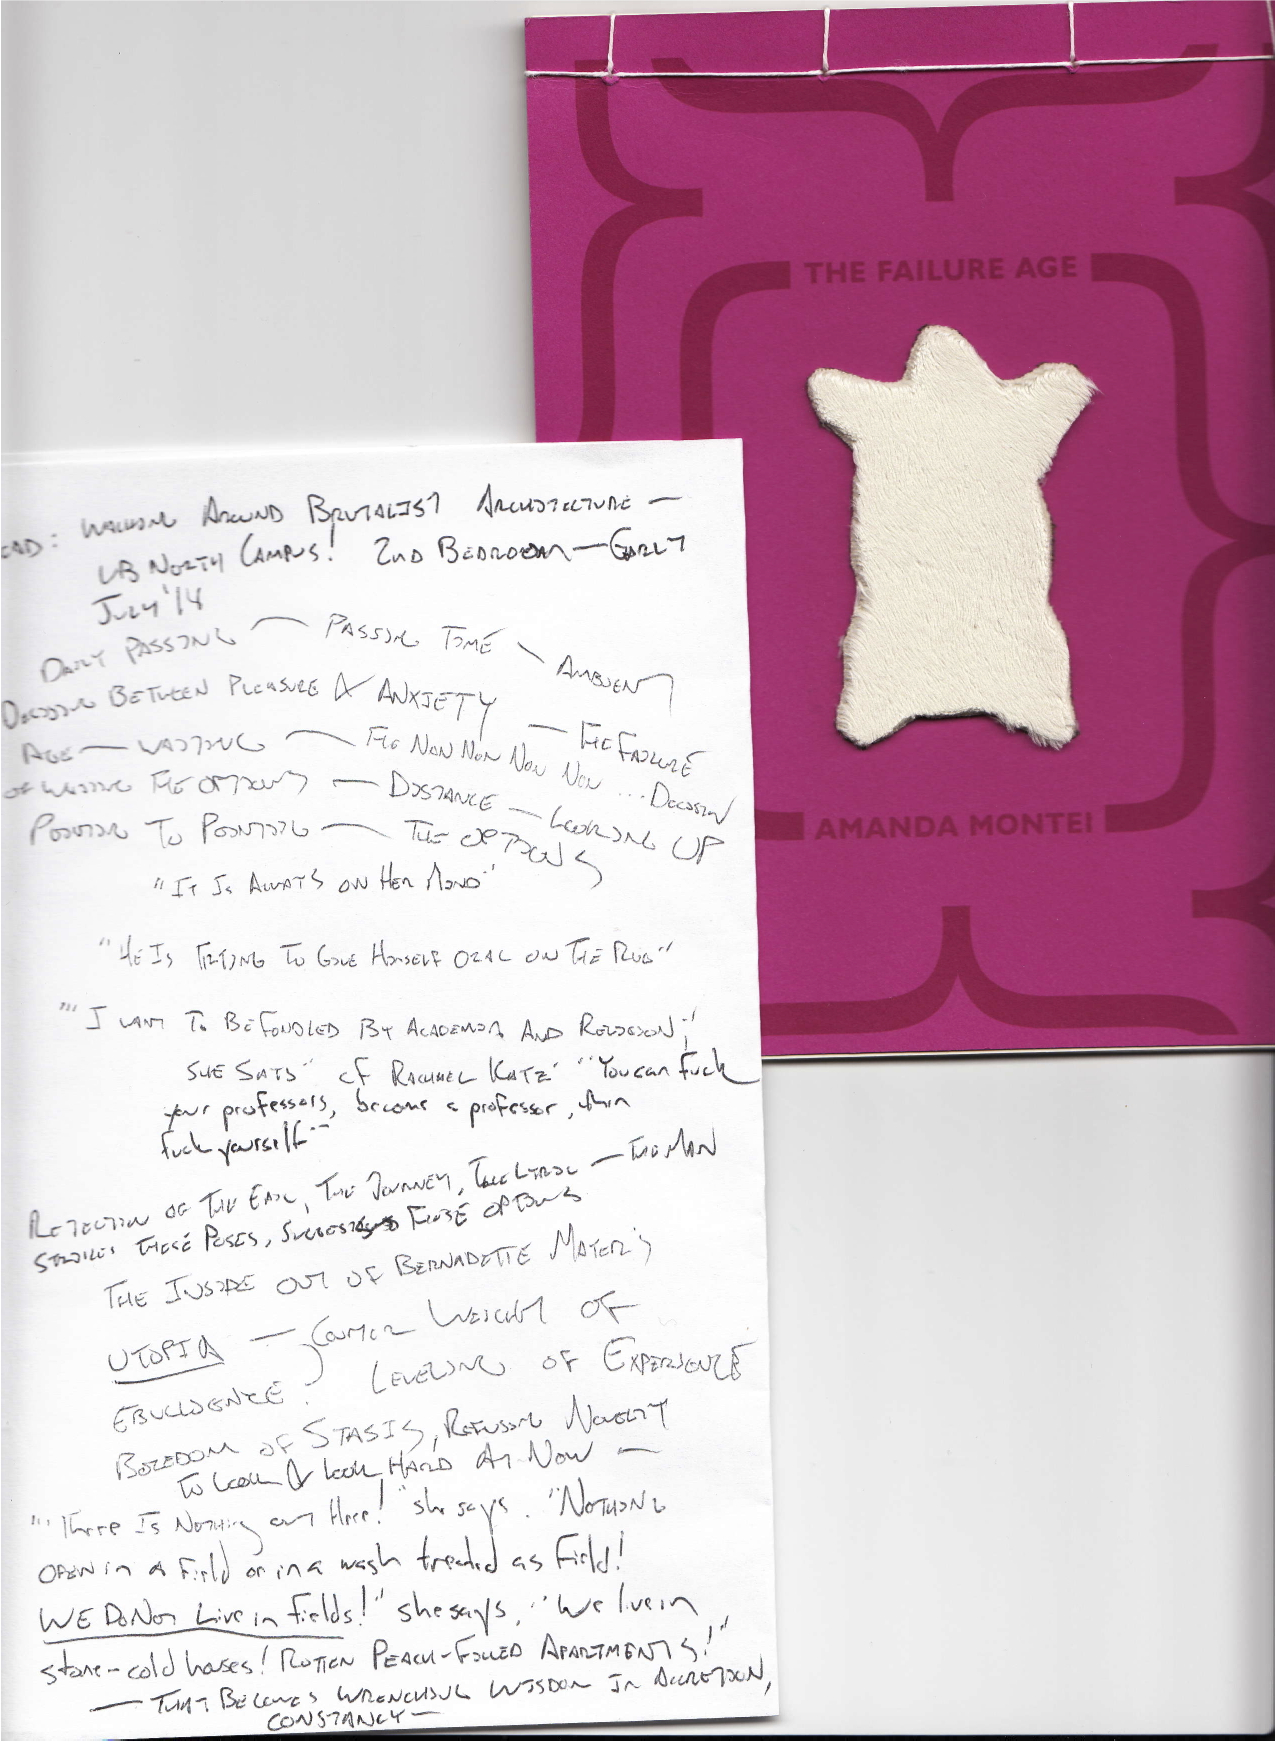 THE FAILURE AGE
AMANDA MONTEI
EAD: WALKING AROUND BRUTALIST ARCHITECTURE —
UB NORTH CAMPUS! 2ND BEDROOM — EARLY
JULY '14
DAILY PASSING — PASSING TIME — AMBIENT
DECIDING BETWEEN PLEASURE & ANXIETY — THE FAILURE
AGE — WAITING — THE NOW NOW NOW NOW ... DECISION
OF WAITING THE OPTIONS — DISTANCE — LOOKING UP
POINTING TO POINTING — THE OPTIONS
"IT IS ALWAYS ON HER MIND"
"HE IS TRYING TO GIVE HIMSELF ORAL ON THE RUG"
"'I WANT TO BE FONDLED BY ACADEMIA AND RELIGION,'
SHE SAYS" CF RACHAEL KATZ' "You can fuck
your professors, become a professor, then
fuck yourself"
REJECTION OF THE EPIC, THE JOURNEY, THE LYRIC — THE MAN
STRIKES THESE POSES, SUGGESTS THESE OPTIONS
THE INSIDE OUT OF BERNADETTE MAYER'S
UTOPIA — COUNTER WEIGHT OF
EBULLIENCE? LEVELING OF EXPERIENCE
BOREDOM OF STASIS, REFUSING NOVELTY
TO LOOK & LOOK HARD AT NOW —
"'There Is Nothing out Here!' she says. 'NOTHING
OPEN in A Field or in a wash treated as Field!
WE DO NOT Live in fields!' she says, 'We live in
stone-cold houses! ROTTEN PEACH-FILLED APARTMENTS!'"
— THAT BECOMES WRENCHING WISDOM IN ACCRETION,
CONSTANCY —